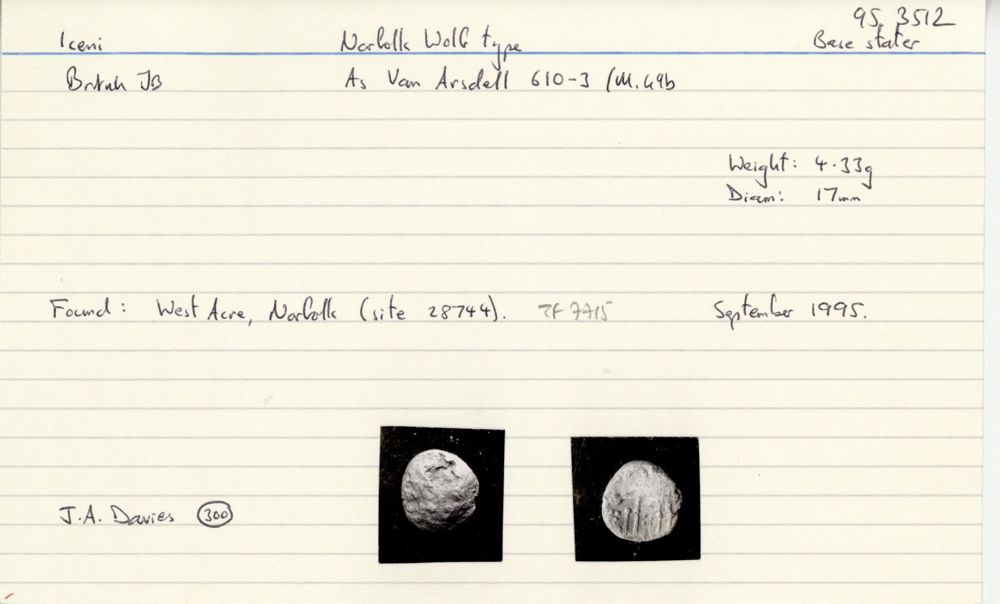 95.3512
Iceni Norfolk Wolf type Base stater
British JB As Van Arsdell 610-3 / M.49b
Weight: 4.33g
Diam: 17mm
Found: West Acre, Norfolk (site 28744). TF 7715 September 1995.
J.A. Davies 300